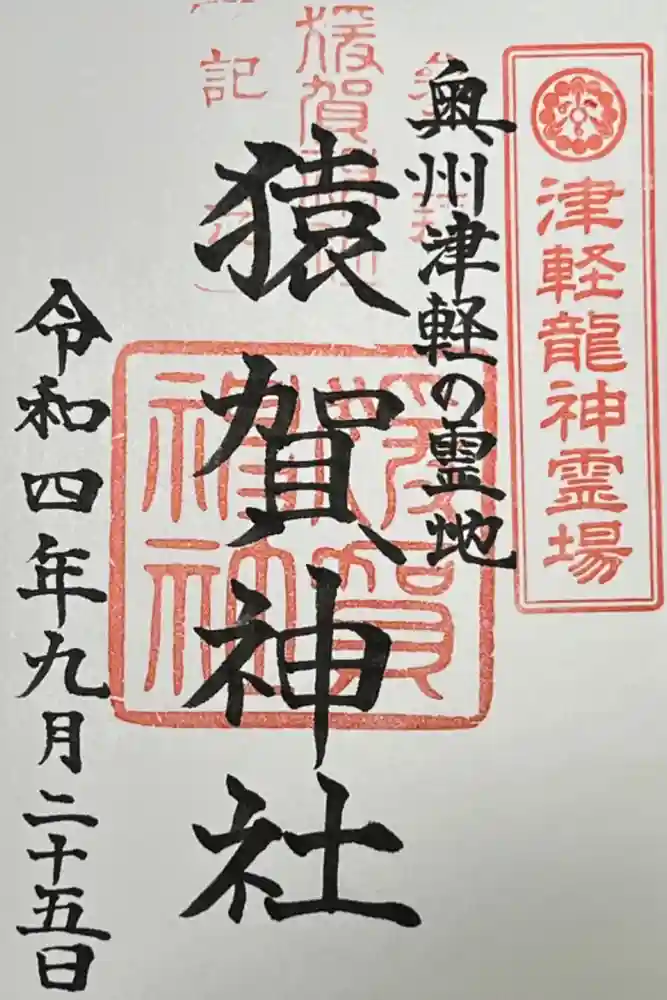 津軽龍神霊場
奥州津軽の霊地
猿賀神社
猿賀神社
猿賀神社
記
令和四年九月二十五日